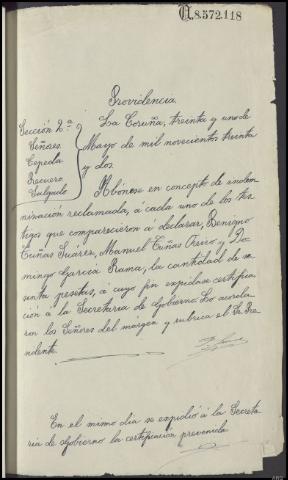 N.8.572.118
Providencia
Sección 2ª
Señores
Cepeda
Recuero
Salgado
La Coruña, treinta y uno de
Mayo de mil novecientos treinta
y dos.
Abónese en concepto de indem-
nización reclamada, á cada uno de los tes-
tigos que comparecieron á declarar, Benigno
Tuñas Suárez, Manuel Tuñas Freiro y Do-
mingo García Rama, la cantidad de se-
senta pesetas, á cuyo fin expídase certifica-
ción á la Secretaría de Gobierno. Lo acorda-
ron los Señores del márgen y rubrica el Sr. Pre-
sidente.
En el mismo día se expidió á la Secreta
ría de Gobierno la certificación prevenida